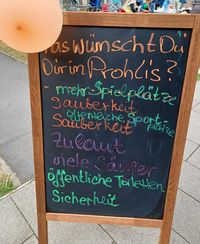 was wünscht Du
Dir in Prohlis?
- mehr Spielplätze
Sauberkeit
öffenliche Sport-
plätze
Sauberkeit
Zu laut
viele Säufer
öffentliche Toiletten
Sicherheit